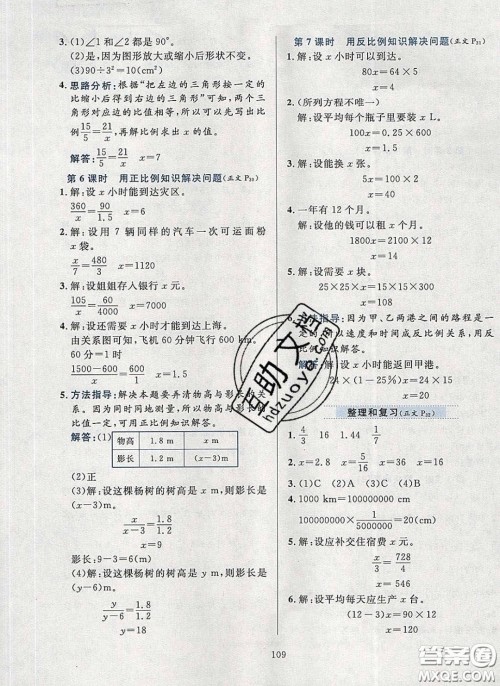 3. (1)∠1 和∠2 都是 90°。
(2)是，因为图形放大或缩小后形状不变。
(3)90÷3²=10(cm²)
4. 思路分析：根据“把左边的三角形按一定的
比缩小后得到右边的三角形”可知，两个三
角形对应边的比值相等，所以可以先写出比
例 15/5=21/x，再解比例求出 x 的值。
解答：15/5=21/x  x=7
第 6 课时 用正比例知识解决问题(正文 P20)
1. 解：设 x 小时能到达灾区。
360/x=90/1.5  x=6
2. 解：设用 7 辆同样的汽车一次可运面粉
x 袋。
x/7=480/3  x=1120
3. 解：设姐姐存入银行 x 元。
105/x=60/4000  x=7000
4. 解：设 x 小时才能到达上海。
由关系图可知，飞机 60 分钟飞行 600 km。
60 分=1 时
1500-600/x=600/1  x=1.5
5. 方法指导：解决本题要弄清物高与影长的关
系。因为同时同地测量，所以物高与影长的
比值一定，可用正比例知识解答。
解答：(1) 物高 1.8 m x m
影长 1.2 m (x-3)m
(2)正
(3)解：设这棵杨树的树高是 x m，则影长是
(x-3)m。
x/(x-3)=1.8/1.2
x=9
影长：9-3=6(m)
(4)解：设这棵杨树的树高是 y m，则影长是
(y-6)m。
y/(y-6)=1.8/1.2
y=18
第 7 课时 用反比例知识解决问题(正文 P21)
1. 解：设 x 小时可以到达。
80x=64×5
x=4
2. (所列方程不唯一)
解：设平均每个瓶子里要装 x L。
100x=0.25×600
x=1.5
3. 解：设能换 x 张。
5x=2×10
x=4
4. 一年有 12 个月。
解：设他的钱可以用 x 个月。
1800x=2400×12
x=16
5. 解：设需要 x 块。
25×25x=15×15×315
x=108
方法指导：因为甲、乙两港之间的路程是一
定的，所以速度和时间成反比例关系，可用反比
例知识解答。
解答：解：设 x 小时能返回甲港。
24×(1-25%)x=24×15
x=20
整理和复习(正文 P22)
1. 4/3 16 1.5 1/16
2. x=2.8 x=35 x=5.44 x=4/7
3. (1)C (2)A (3)B
4. 1000 km=100000000 cm
100000000×1/5000000=20(cm)
5. 解：设应补交住宿费 x 元。
x/3=728/4
x=546
6. 解：设平均每天应生产 x 个。
(12-3)x=90×12
x=120
109
互助文哲
hdzuoye.com
答案圈
MXQE.COM